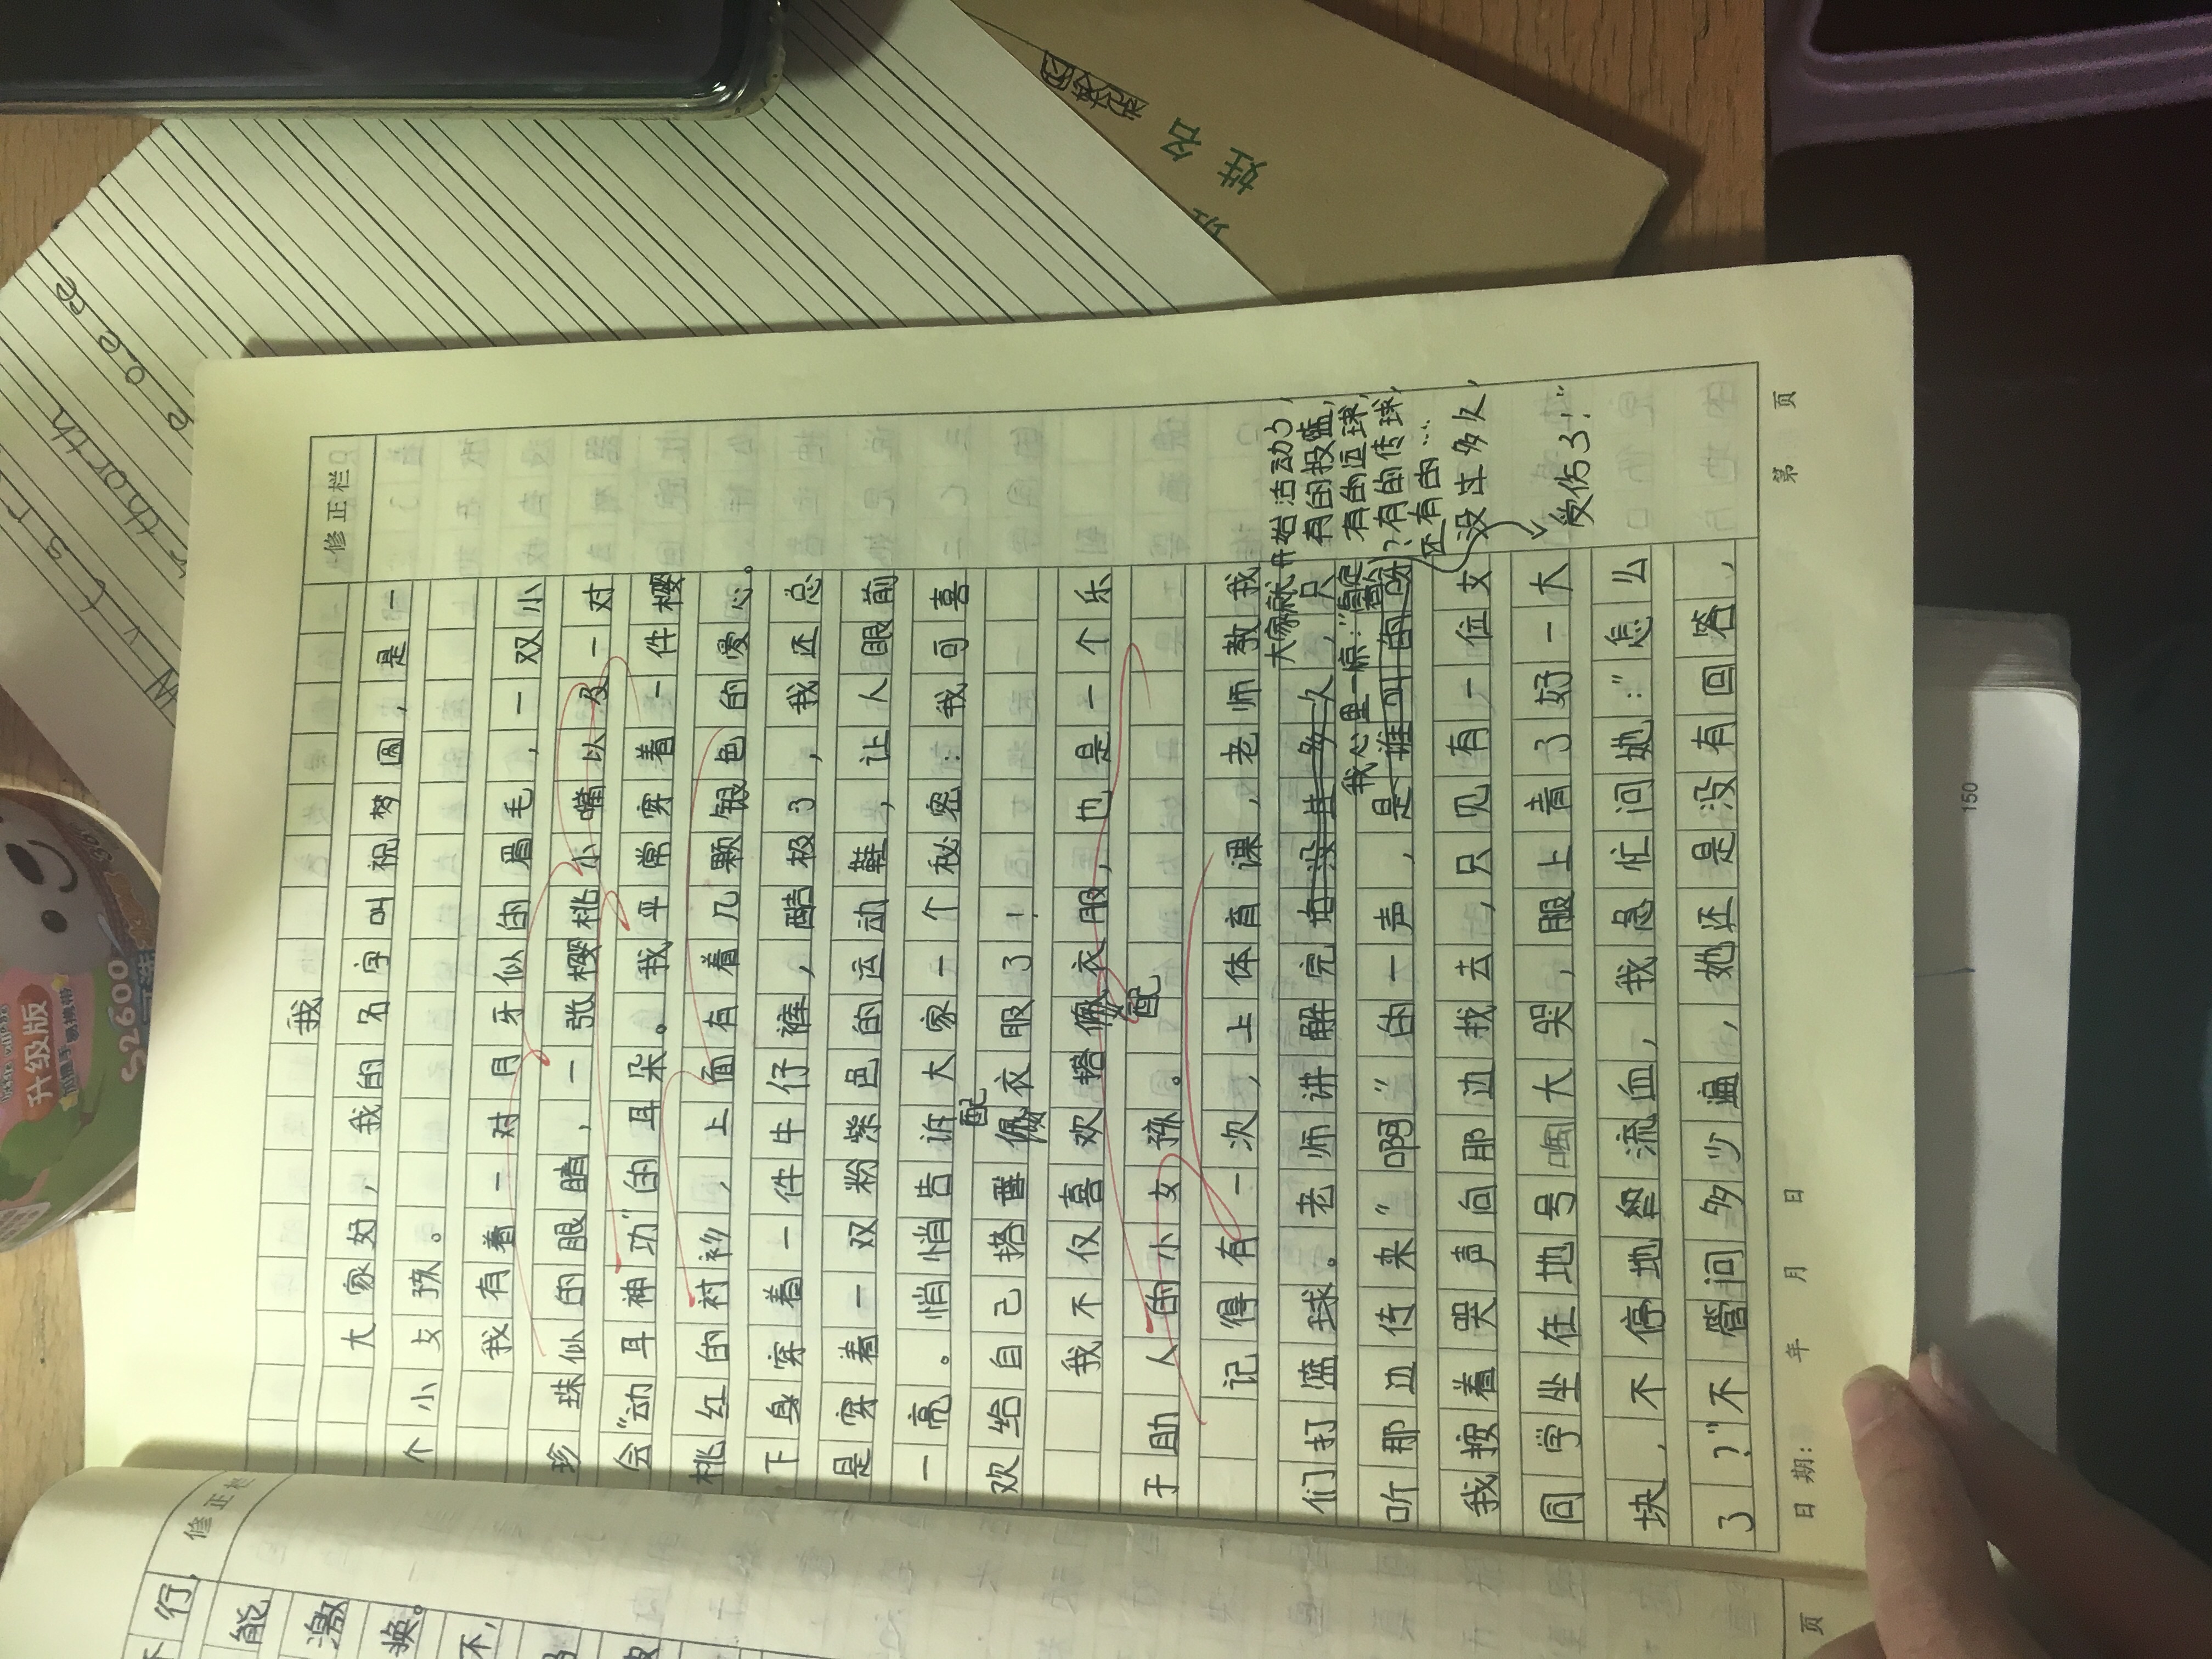 修正栏
我
大家好，我的名字叫祝梦圆，是一
个小女孩。
我有着一对月牙似的眉毛，一双小
珍珠似的眼睛，一张樱桃小嘴以及一对
会“动耳神功”的耳朵。我平常穿着一件樱
桃红的衬衫，上面有着几颗银色的爱心。
下身穿着一件牛仔裤，酷极了，我还总
是穿着一双粉紫色的运动鞋，让人眼前
一亮。悄悄告诉大家一个秘密：我可喜
欢给自己搭配衣服了！
我不仅喜欢搭配衣服，也是一个乐
于助人的小女孩。
记得有一次，上体育课，老师教我
们打篮球。老师讲解完
大家就开始活动了，
有的投篮，
有的运球，
有的传球，
还有的…
没过多久，
只
听那边传来“啊”的一声，
我心里一惊：“
是
受伤了！”
我按着哭声向那边找去，只见有一位女
同学坐在地号啕大哭，服上青了好一大
块，不停地流血，我急忙问她：“怎么
了？”不管问多少遍，她还是没有回答，
日期： 年 月 日
第 页
姓名
班
thorth
升级版
S2600
150
修正栏
行，
能
激
换。
不，
页